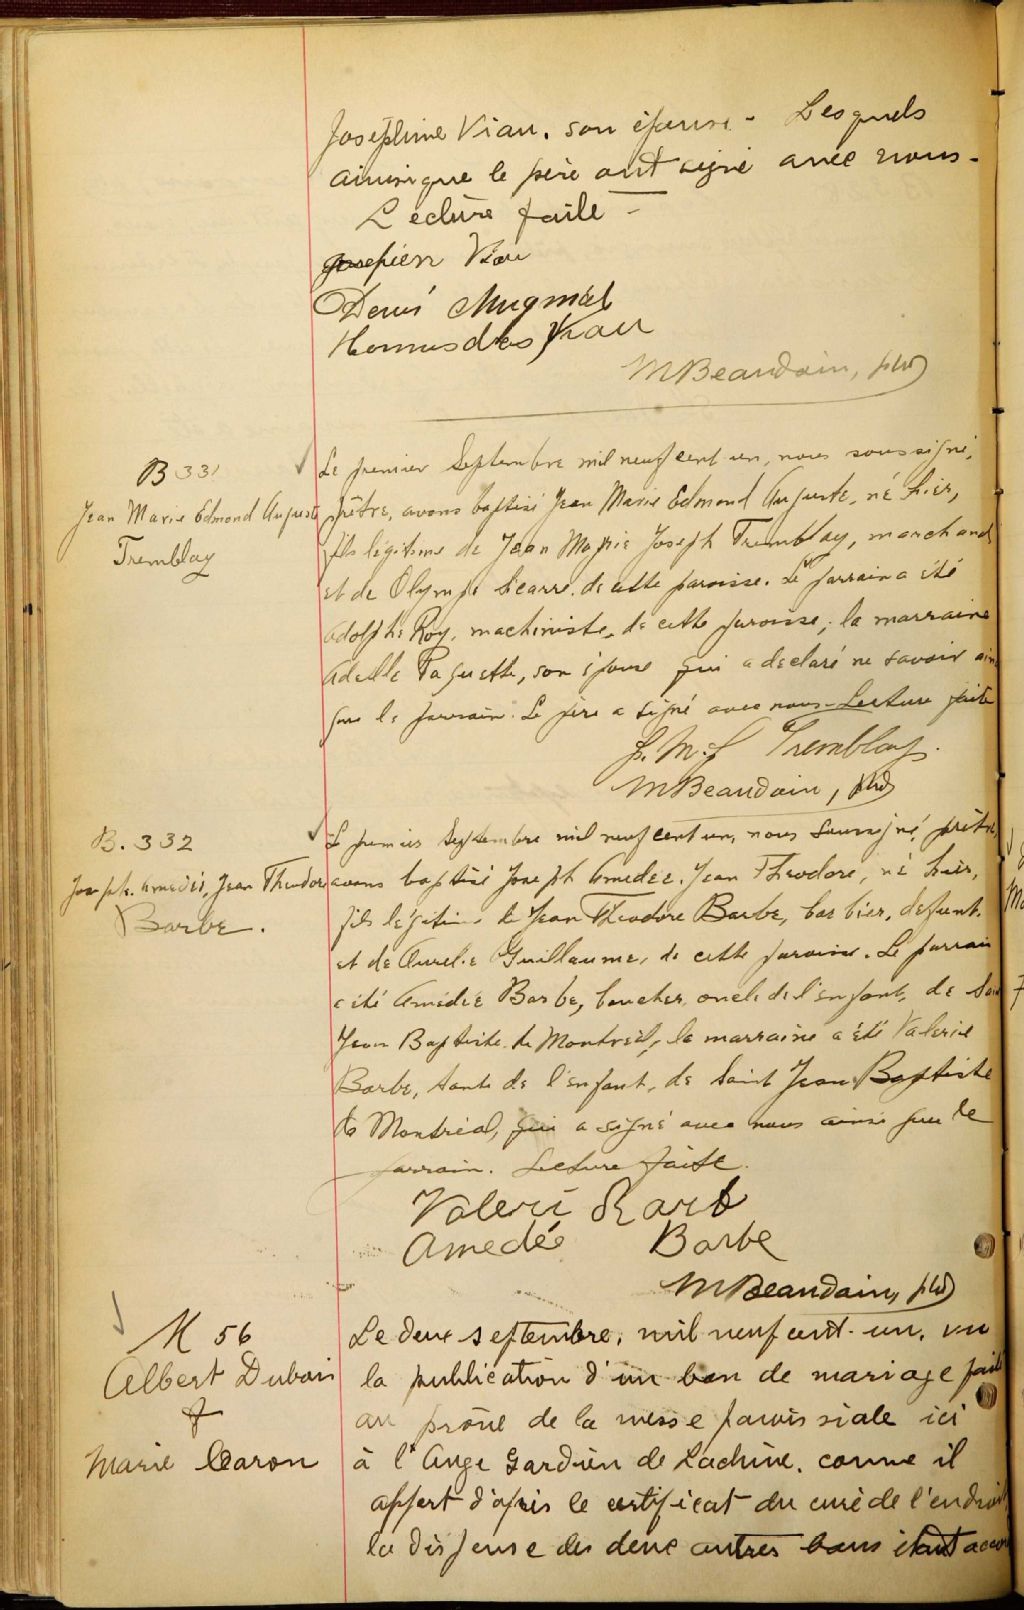 Josephine Viau, son épouse - Lesquels
ainsi que le père ont signé avec nous -
Lecture faite -
Viau
Denis
Hormisdas Viau
M Beaudoin, ptre
B 331
Jean Marie Edmond August
Tremblay
Le premier Septembre mil neuf cent un, nous soussigné,
prêtre, avons baptisé Jean Marie Edmond Auguste, né hier,
fils légitime de Jean Marie Joseph Tremblay, marchand
et de Olympe de cette paroisse. Le parrain a été
Adolphe Roy, machiniste, de cette paroisse; la marraine
Adelle Paquette, son épouse qui a declaré ne savoir ain
que le parrain. Le père a signé avec nous - Lecture faite
J. M. J Tremblay.
M Beaudoin, ptre
B. 332
Joseph Amédée, Jean Theodore
Barbe.
Le premier Septembre mil neuf cent un, nous soussigné, prêtre,
avons baptisé Joseph Amedee, Jean Theodore, né hier,
fils légitime de Jean Theodore Barbe, barbier, defunt.
et de Aurelie Guillaume, de cette paroisse. Le parrain
a été Amédée Barbe, boucher, oncle de l'enfant, de Saint
Jean Baptiste de Montréal, la marraine a été Valerie
Barbe, tante de l'enfant, de Saint Jean Baptiste
de Montréal, qui a signé avec nous ainsi que le
parrain. Lecture faite.
Valeri Barb
Amedée Barbe
M Beaudoin, ptre
M 56
Albert Dubois
&
Marie Caron
Le deux septembre, mil neuf cent-un, vu
la publication d'un ban de mariage fait
au prône de la messe paroissiale ici
à l'Ange Gardien de Lachine, comme il
appert d'après le certificat du curé de l'endroit,
la dispense des deux autres bans étant accor